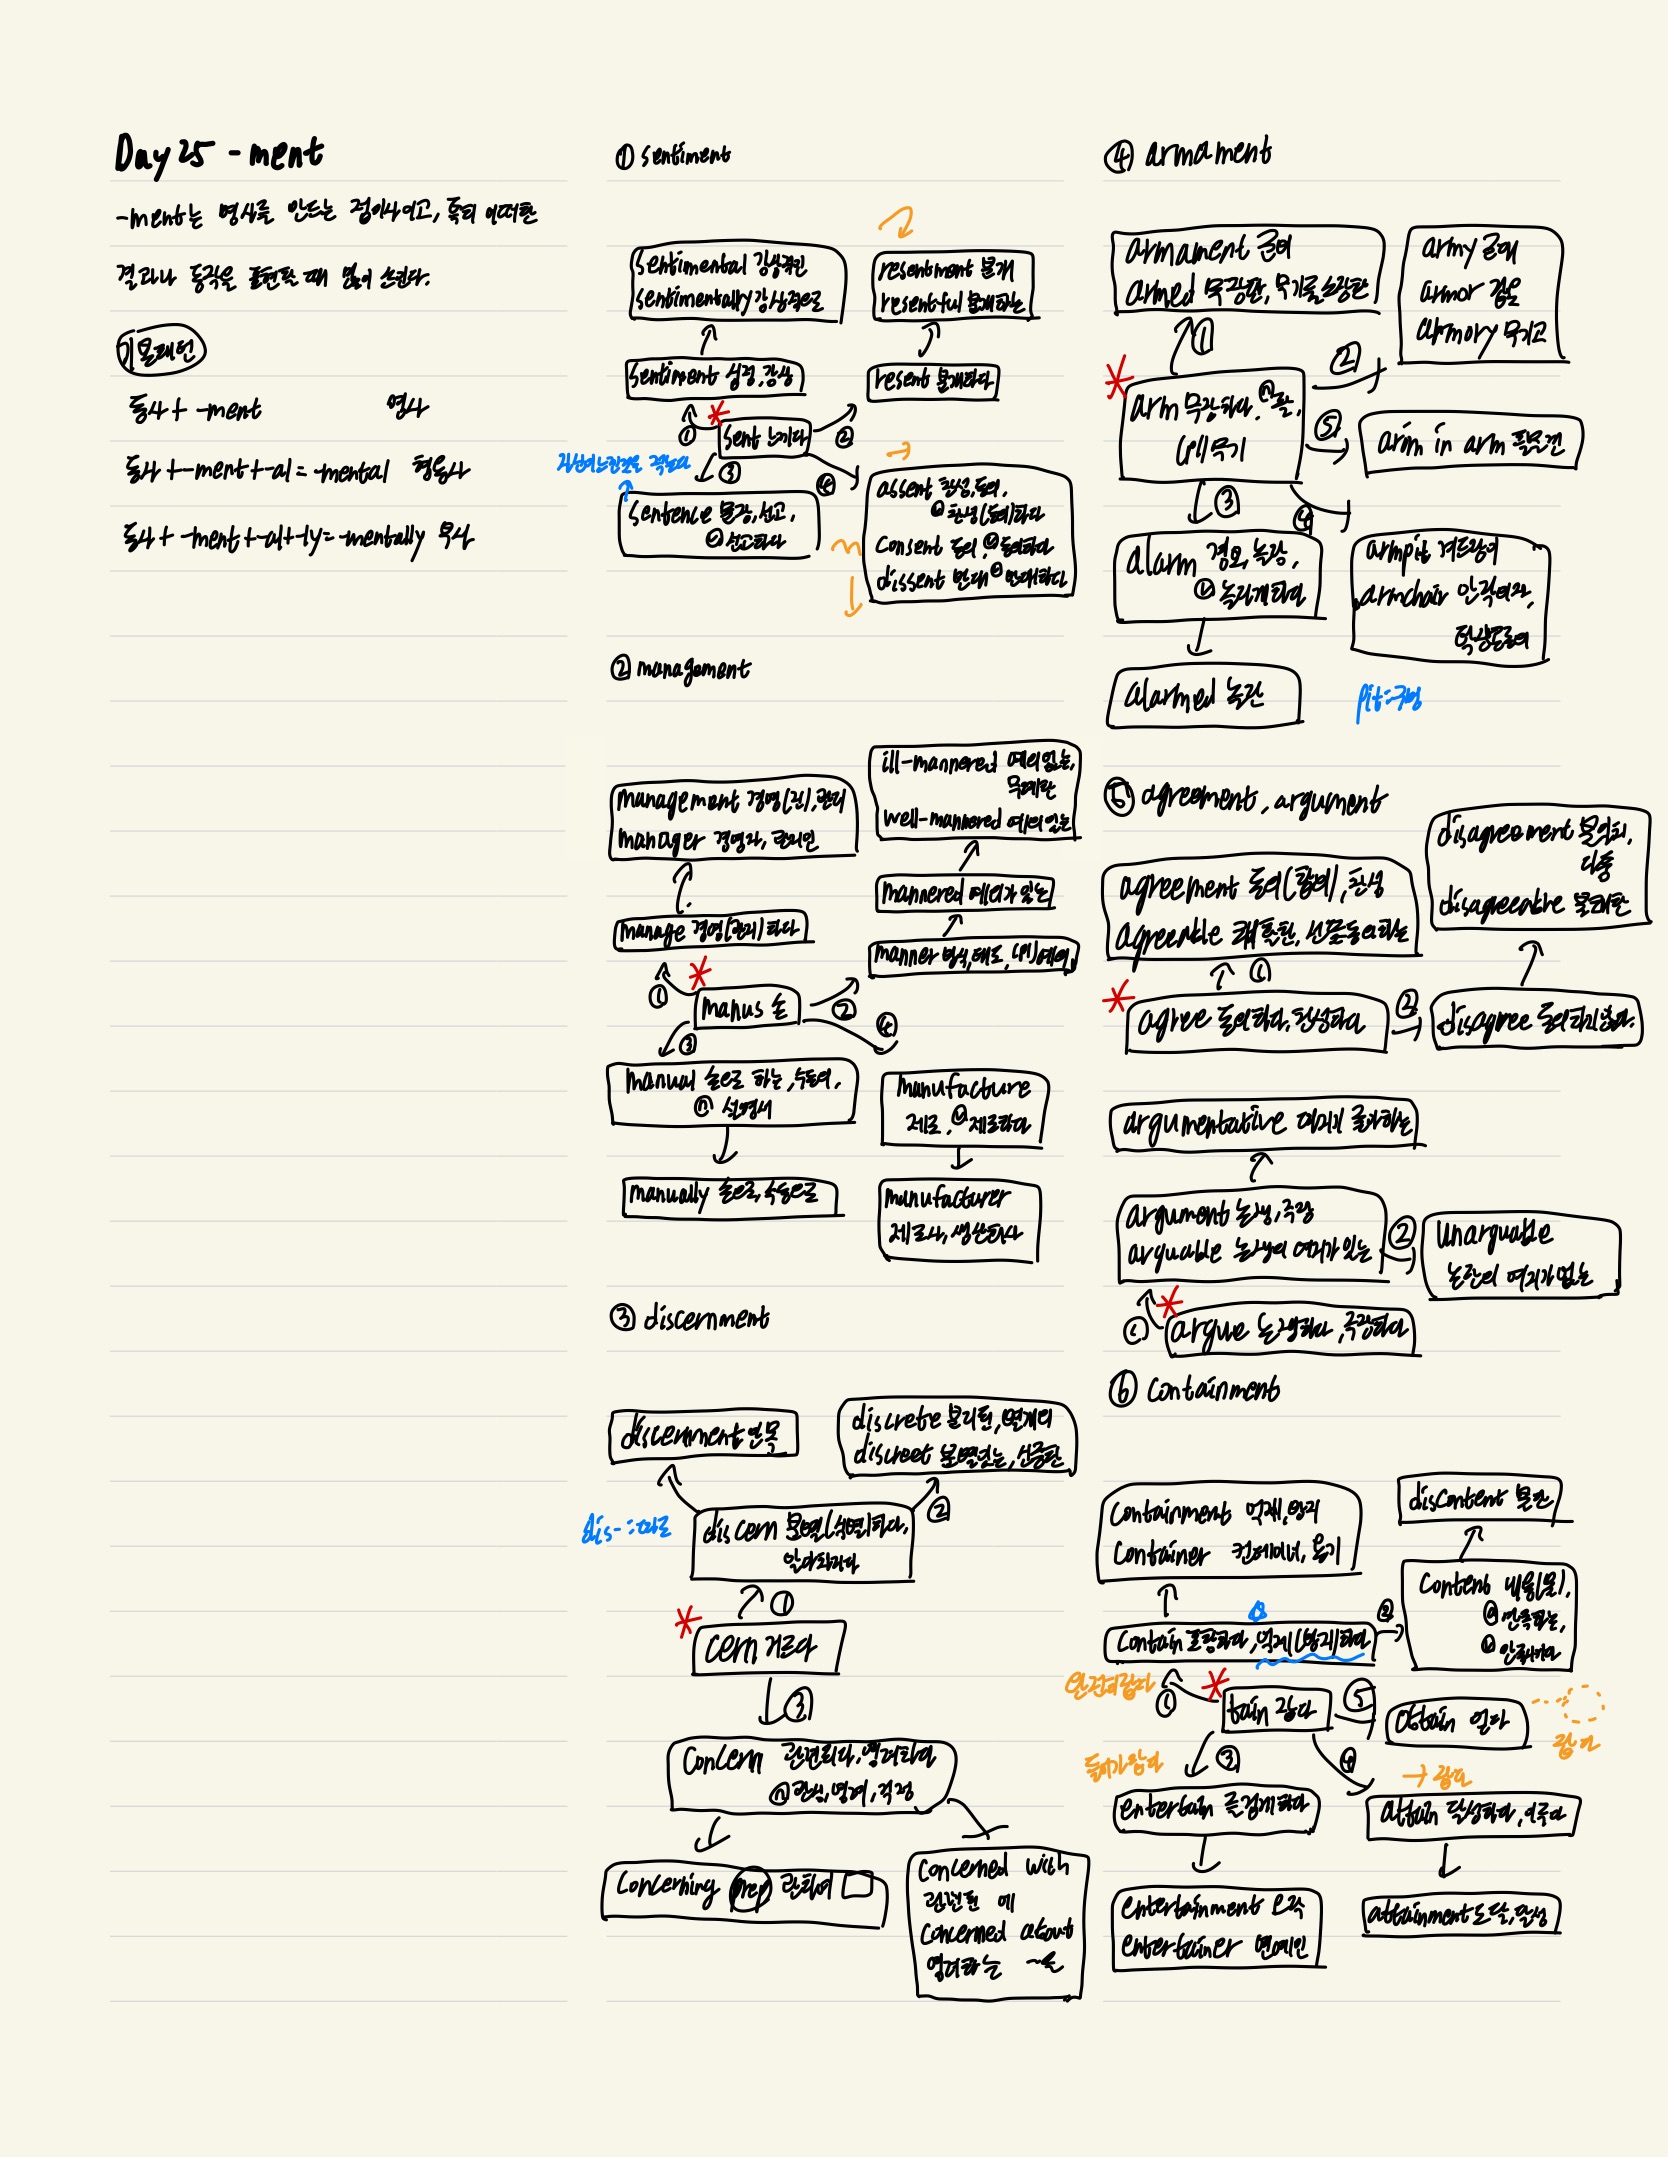 Day 25 - ment
-ment는 명사를 만드는 접미사이고, 특히 어떠한
결과나 동작을 표현할 때 많이 쓰인다.
기본패턴
동사 + -ment 명사
동사 + -ment + -al = -mental 형용사
동사 + -ment + -al + -ly = -mentally 부사
① sentiment
sentimental 감상적인
sentimentally 감상적으로
resentment 분개
resentful 분개하는
sentiment 심정, 감상
resent 분개하다
sent 느끼다
①
②
③
④
sentence 문장, 선고,
ⓥ 선고하다
assent 찬성, 동의,
ⓥ 찬성(동의)하다
consent 동의, ⓥ 동의하다
dissent 반대 ⓥ 반대하다
② management
management 경영(진), 관리
manager 경영자, 관리인
ill-mannered 예의없는,
무례한
well-mannered 예의있는
mannered 예의가 있는
manage 경영(관리)하다
manner 방식, 태도, (pl) 예의,
manus 손
①
②
③
④
manual 손으로 하는, 수동의,
ⓝ 설명서
manufacture
제조, ⓥ 제조하다
manually 손으로, 수동으로
manufacturer
제조사, 생산회사
③ discernment
discernment 안목
discrete 분리된, 별개의
discreet 분별있는, 신중한
dis-: 따로
discern 분별(식별)하다,
알아차리다
②
①
cern 거르다
③
concern 관련되다, 염려하다
ⓝ 관심, 염려, 걱정
concerning prep 관하여
concerned with
관련된 에
concerned about
염려하는 ~를
④ armament
armament 군비
armed 무장한, 무기를 소장한
army 군대
armor 갑옷
armory 무기고
①
②
arm 무장하다, ⓝ 팔,
(pl) 무기
⑤
arm in arm 팔짱낀
③
④
alarm 경보, 놀람,
ⓥ 놀라게하다
armpit 겨드랑이
armchair 안락의자,
탁상공론의
alarmed 놀란
pit: 구멍
⑤ agreement, argument
disagreement 불일치,
다툼
disagreeable 불쾌한
agreement 동의(합의), 찬성
agreeable 쾌활한, 선뜻동의하는
①
agree 동의하다, 찬성하다
②
disagree 동의하지않다.
argumentative 따지기 좋아하는
argument 논쟁, 주장
arguable 논쟁의 여지가 있는
②
unarguable
논란의 여지가 없는
①
argue 논쟁하다, 주장하다
⑥ containment
containment 억제, 방지
container 컨테이너, 용기
discontent 불만
content 내용(물),
ⓐ 만족하는,
ⓥ 만족시키다
contain 포함하다, 억제(방지)하다
②
완전히 잡다
①
tain 잡다
⑤
obtain 얻다
잡다
들어가 잡다
③
④
→ 잡다
entertain 즐겁게하다
attain 달성하다, 이루다
entertainment 오락
entertainer 연예인
attainment 도달, 달성